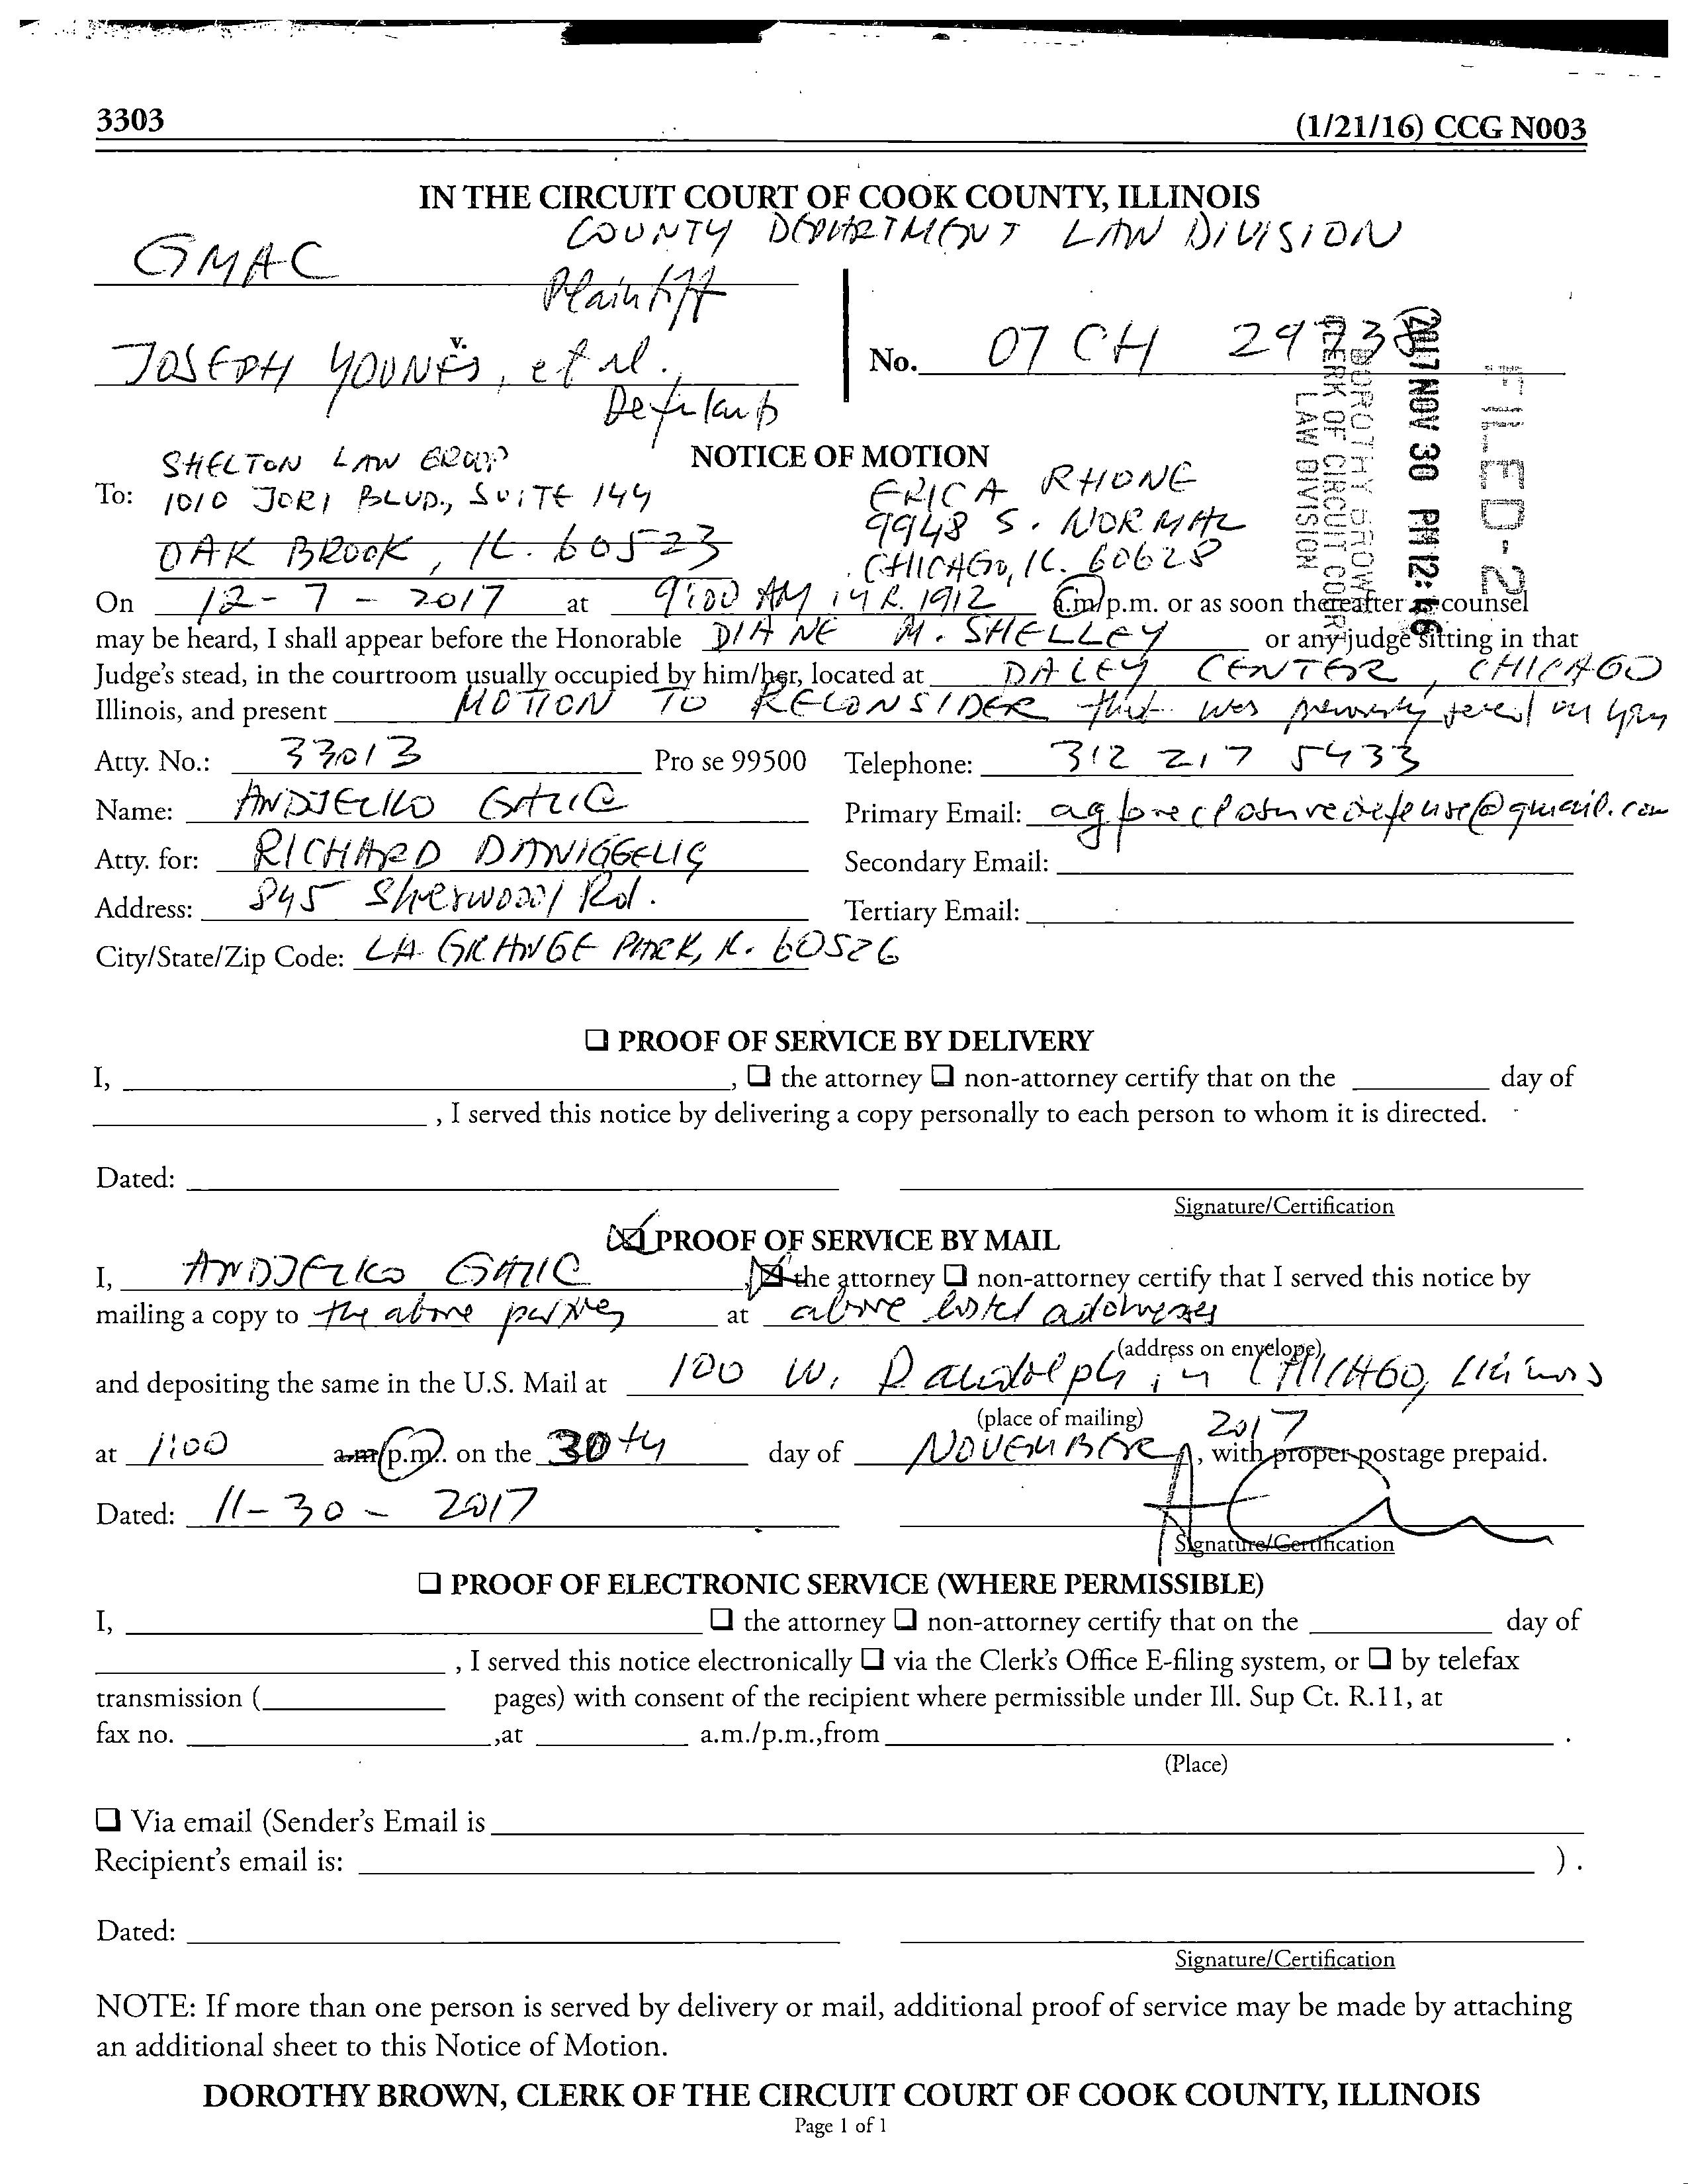 3303 (1/21/16) CCG N003
IN THE CIRCUIT COURT OF COOK COUNTY, ILLINOIS
COUNTY DEPARTMENT LAW DIVISION
GMAC
Plaintiff
v.
JOSEPH YOUNES, et al.,
Defendants
No. 07 CH 2973
FILED-2
2017 NOV 30 PM 12:46
DOROTHY BROWN
CLERK OF CIRCUIT COURT
LAW DIVISION
NOTICE OF MOTION
To: SHELTON LAW GROUP
1010 JORI BLVD., SUITE 144
OAK BROOK, IL. 60523
ERICA RHONE
9948 S. NORMAL
CHICAGO, IL. 60628
On 12-7-2017 at 9:00 AM in R. 1912 a.m/p.m. or as soon thereafter as counsel
may be heard, I shall appear before the Honorable DIANE M. SHELLEY or any judge sitting in that
Judge's stead, in the courtroom usually occupied by him/her, located at DALEY CENTER, CHICAGO
Illinois, and present MOTION TO RECONSIDER that was previously served on you
Atty. No.: 33013 Pro se 99500 Telephone: 312 217 5433
Name: ANDJELKO GALIC Primary Email: agforeclosuredefense@gmail.com
Atty. for: RICHARD DANIGGELIS Secondary Email:
Address: 845 Sherwood Rd. Tertiary Email:
City/State/Zip Code: LA GRANGE PARK, IL. 60526
❏ PROOF OF SERVICE BY DELIVERY
I, , ❏ the attorney ❏ non-attorney certify that on the day of
, I served this notice by delivering a copy personally to each person to whom it is directed.
Dated:
Signature/Certification
☒ PROOF OF SERVICE BY MAIL
I, ANDJELKO GALIC, ☒ the attorney ❏ non-attorney certify that I served this notice by
mailing a copy to the above parties at above listed addresses
(address on envelope)
and depositing the same in the U.S. Mail at 100 W. Randolph in CHICAGO, Illinois
(place of mailing)
at 1:00 a.m/p.m. on the 30th day of NOVEMBER 2017, with proper postage prepaid.
Dated: 11-30-2017
Signature/Certification
❏ PROOF OF ELECTRONIC SERVICE (WHERE PERMISSIBLE)
I, ❏ the attorney ❏ non-attorney certify that on the day of
, I served this notice electronically ❏ via the Clerk's Office E-filing system, or ❏ by telefax
transmission ( pages) with consent of the recipient where permissible under Ill. Sup Ct. R.11, at
fax no. ,at a.m./p.m.,from .
(Place)
❏ Via email (Sender's Email is
Recipient's email is: ) .
Dated:
Signature/Certification
NOTE: If more than one person is served by delivery or mail, additional proof of service may be made by attaching
an additional sheet to this Notice of Motion.
DOROTHY BROWN, CLERK OF THE CIRCUIT COURT OF COOK COUNTY, ILLINOIS
Page 1 of 1